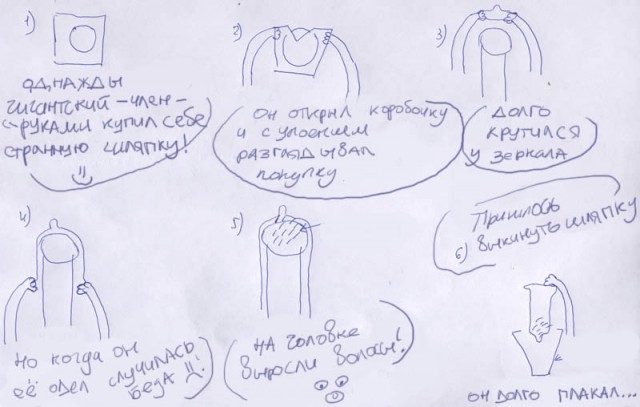 1)
ОДНАЖДЫ
ГИГАНТСКИЙ-ЧЛЕН-
С-РУКАМИ КУПИЛ СЕБЕ
СТРАННУЮ ШЛЯПКУ!
2)
Он открыл коробочку
и с упоением
разглядывал
покупку
3)
ДОЛГО
КРУТИЛСЯ
у зеркала
4)
Но когда он
её одел случилась
беда
5)
НА ГОЛОВКЕ
Выросли волосы!
6)
Пришлось
Выкинуть шляпку
ОН ДОЛГО ПЛАКАЛ...